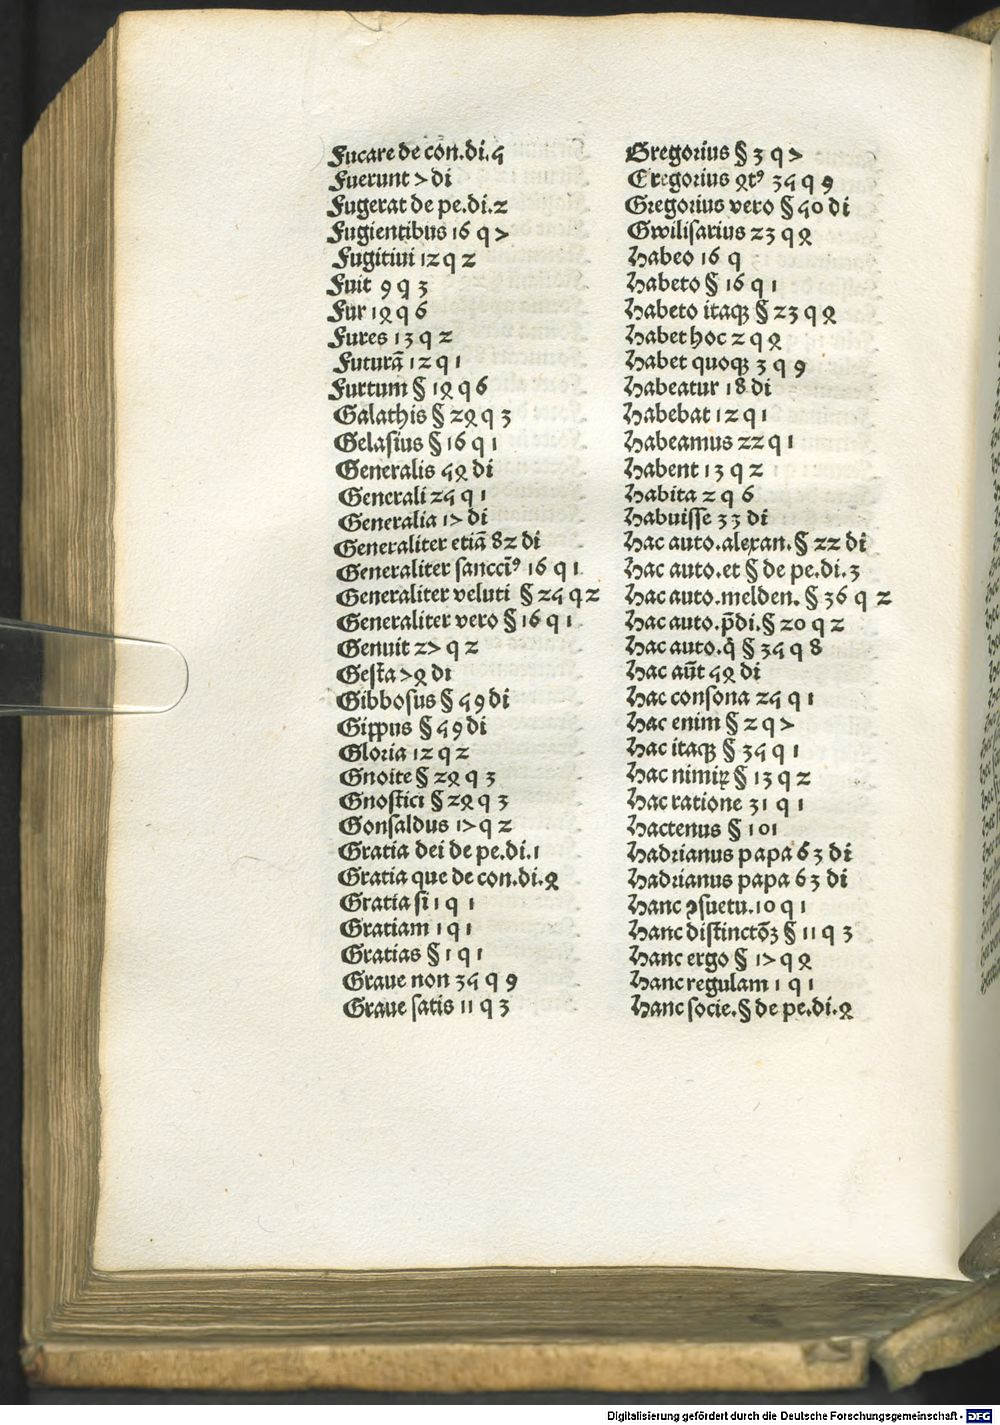 Fucare de cōn.di.5
Fuerunt 7 di
Fugerat de pe.di.2
Fugientibus 16 q 7
Fugitiui 12 q 2
Fuit 9 q 3
Fur 14 q 6
Fures 13 q 2
Futurā 12 q 1
Furtum § 14 q 6
Galathis § 24 q 3
Gelasius § 16 q 1
Generalis 54 di
Generali 25 q 1
Generalia 17 di
Generaliter etiā 82 di
Generaliter sanccīꝰ 16 q 1
Generaliter veluti § 25 q 2
Generaliter vero § 16 q 1
Genuit 27 q 2
Gesta 74 di
Gibbosus § 49 di
Gippus § 49 di
Gloria 12 q 2
Gnoite § 24 q 3
Gnostici § 24 q 3
Gonsaldus 17 q 2
Gratia dei de pe.di.1
Gratia que de con.di.4
Gratia si 1 q 1
Gratiam 1 q 1
Gratias § 1 q 1
Graue non 35 q 9
Graue satis 11 q 3
Gregorius § 3 q 7
Gregorius 4tꝰ 35 q 9
Gregorius vero § 50 di
Gwilisarius 23 q 4
Habeo 16 q
Habeto § 16 q 1
Habeto itaqꝫ § 23 q 4
Habet hoc 2 q 4
Habet quoqꝫ 3 q 9
Habeatur 18 di
Habebat 12 q 1
Habeamus 22 q 1
Habent 13 q 2
Habita 2 q 6
Habuisse 33 di
Hac auto.alexan.§ 22 di
Hac auto.et § de pe.di.3
Hac auto.melden.§ 36 q 2
Hac auto.p̄di.§ 20 q 2
Hac auto.q̄ § 35 q 8
Hac aūt 54 di
Hac consona 25 q 1
Hac enim § 2 q 7
Hac itaqꝫ § 35 q 1
Hac nimiꝝ § 13 q 2
Hac ratione 31 q 1
Hactenus § 101
Hadrianus papa 63 di
Hadrianus papa 63 di
Hanc ꝯsuetu.10 q 1
Hanc distinctōꝫ § 11 q 3
Hanc ergo § 17 q 4
Hanc regulam 1 q 1
Hanc socie.§ de pe.di.4
Digitalisierung gefördert durch die Deutsche Forschungsgemeinschaft - DFG